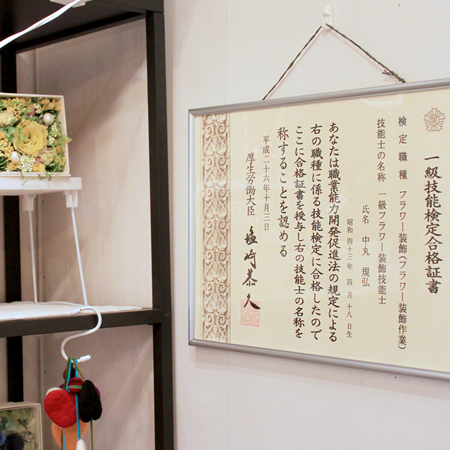 一級技能検定合格証書
検定職種 フラワー装飾(フラワー装飾作業)
技能士の名称 一級フラワー装飾技能士
氏名 中丸 規弘
昭和四十三年 四月十八日生
あなたは職業能力開発促進法の規定による
右の職種に係る技能検定に合格したので
ここに合格証書を授与し右の技能士の名称を
称することを認める
平成二十六年十月三日
厚生労働大臣 塩崎恭久